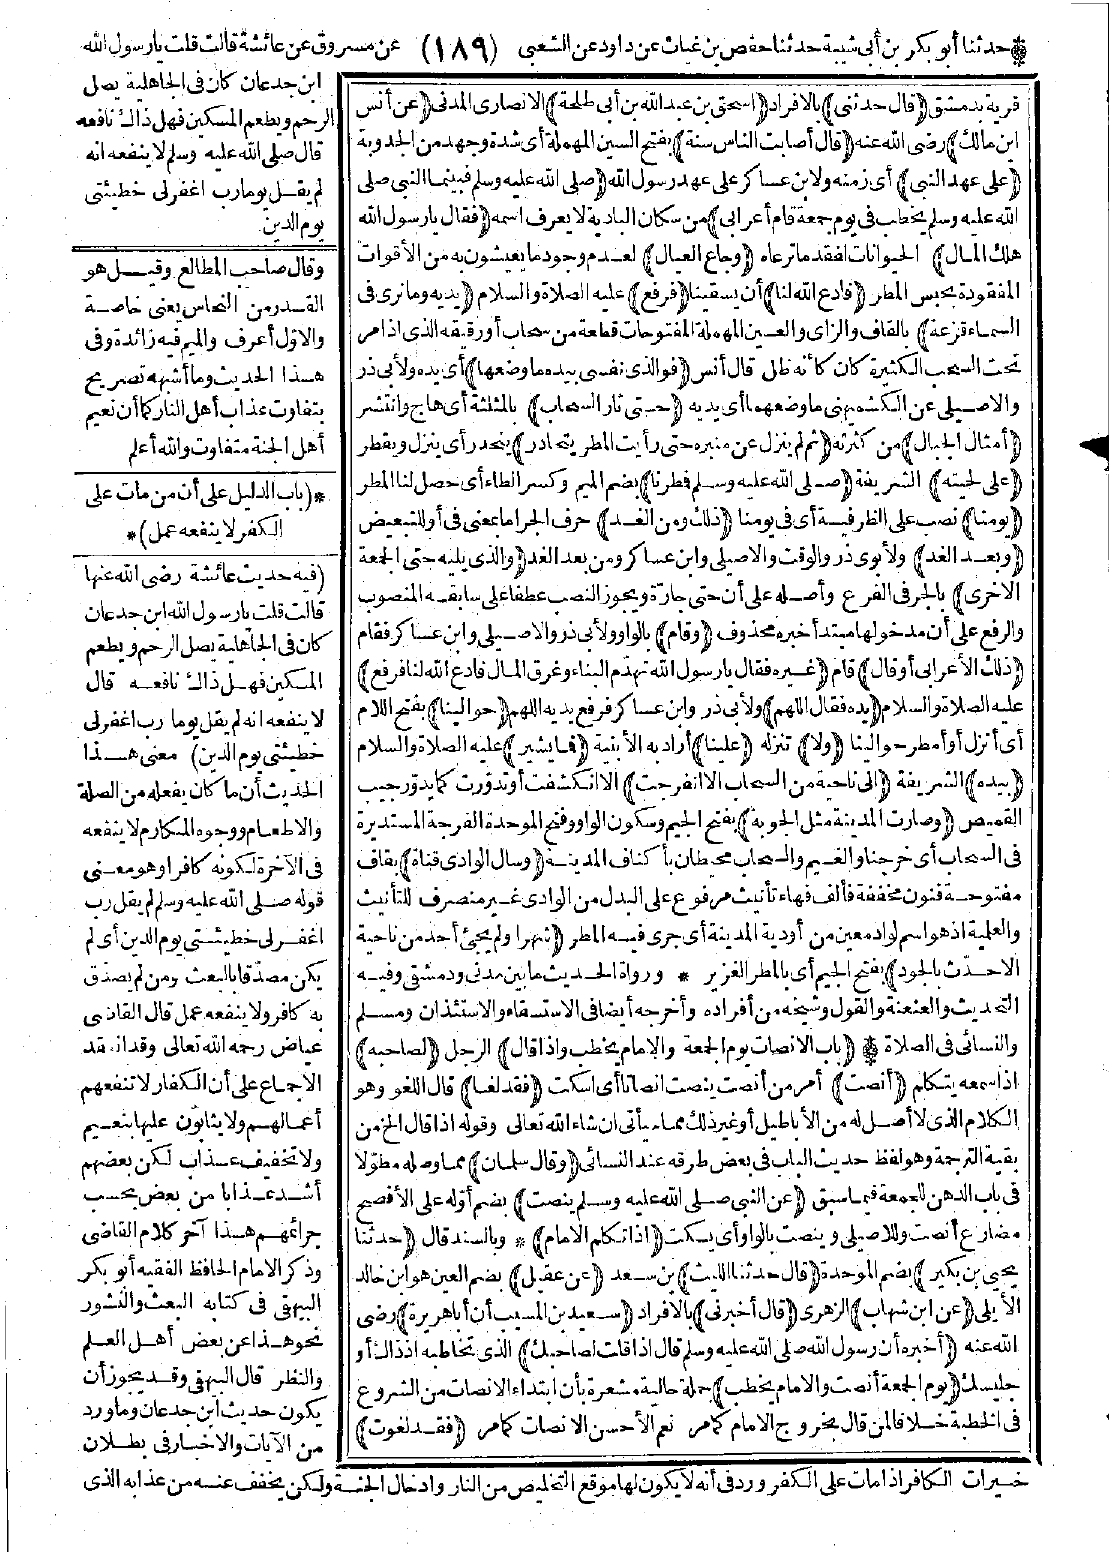 حدثنا أبو بكر بن أبي شيبة حدثنا حفص بن غياث عن داود عن الشعبي (١٨٩) عن مسروق عن عائشة قالت قلت يا رسول الله
ابن جدعان كان في الجاهلية يصل
الرحم ويطعم المسكين فهل ذاك نافعه
قال صلى الله عليه وسلم لا ينفعه انه
لم يقل يوما رب اغفر لي خطيئتي
يوم الدين
وقال صاحب المطالع وقيل هو
القدر من النحاس يعني خاصة
والاول أعرف والميم فيه زائدة وفي
هذا الحديث وما أشبهه تصريح
بتفاوت عذاب أهل النار كما أن نعيم
أهل الجنة متفاوت والله أعلم
*(باب الدليل على أن من مات على
الكفر لا ينفعه عمل)*
(فيه حديث عائشة رضي الله عنها
قالت قلت يا رسول الله ابن جدعان
كان في الجاهلية يصل الرحم ويطعم
المسكين فهل ذاك نافعه قال
لا ينفعه انه لم يقل يوما رب اغفر لي
خطيئتي يوم الدين) معنى هذا
الحديث أن ما كان يفعله من الصلة
والاطعام ووجوه المكارم لا ينفعه
في الآخرة لكونه كافرا وهو معنى
قوله صلى الله عليه وسلم لم يقل رب
اغفر لي خطيئتي يوم الدين أي لم
يكن مصدقا بالبعث ومن لم يصدق
به كافر ولا ينفعه عمل قال القاضي
عياض رحمه الله تعالى وقد انعقد
الاجماع على أن الكفار لا تنفعهم
أعمالهم ولا يثابون عليها بنعيم
ولا تخفيف عذاب لكن بعضهم
أشد عذابا من بعض بحسب
جرائمهم هذا آخر كلام القاضي
وذكر الامام الحافظ الفقيه أبو بكر
البيهقي في كتابه البعث والنشور
نحو هذا عن بعض أهل العلم
والنظر قال البيهقي وقد يجوز أن
يكون حديث ابن جدعان وما ورد
من الآيات والاخبار في بطلان
قرية بدمشق (قال حدثني) بالافراد (اسحق بن عبد الله بن أبي طلحة) الانصاري المدني (عن أنس
ابن مالك) رضي الله عنه (قال أصابت الناس سنة) بفتح السين المهملة أي شدة وجهد من الجدوبة
(على عهد النبي) أي زمنه ولابن عساكر على عهد رسول الله (صلى الله عليه وسلم فبينما النبي صلى
الله عليه وسلم يخطب في يوم جمعة قام أعرابي) من سكان البادية لا يعرف اسمه (فقال يا رسول الله
هلك المال) الحيوانات لفقد ما ترعاه (وجاع العيال) لعدم وجود ما يعيشون به من الأقوات
المفقودة بحبس المطر (فادع الله لنا) أن يسقينا (فرفع) عليه الصلاة والسلام (يديه وما نرى في
السماء قزعة) بالقاف والزاي والعين المهملة المفتوحات قطعة من سحاب أو رقيقه الذي اذا مر
تحت السحب الكثيرة كان كأنه ظل قال أنس (فوالذي نفسي بيده ما وضعها) أي يده ولأبي ذر
والاصيلي عن الكشميهني ما وضعهما أي يديه (حتى ثار السحاب) بالمثلثة أي هاج وانتشر
(أمثال الجبال) من كثرته (ثم لم ينزل عن منبره حتى رأيت المطر يتحادر) ينحدر أي ينزل ويقطر
(على لحيته) الشريفة (صلى الله عليه وسلم فمطرنا) بضم الميم وكسر الطاء أي حصل لنا المطر
(يومنا) نصب على الظرفية أي في يومنا (ذلك ومن الغد) حرف الجر اما بمعنى في أو للتبعيض
(وبعد الغد) ولأبوي ذر والوقت والاصيلي وابن عساكر ومن بعد الغد (والذي يليه حتى الجمعة
الاخرى) بالجر في الفرع وأصله على أن حتى جارة ويجوز النصب عطفا على سابقه المنصوب
والرفع على أن مدخولها مبتدأ خبره محذوف (وقام) بالواو ولأبي ذر والاصيلي وابن عساكر فقام
(ذلك الأعرابي أو قال) قام (غيره فقال يا رسول الله تهدم البناء وغرق المال فادع الله لنا فرفع)
عليه الصلاة والسلام (يده فقال اللهم) ولأبي ذر وابن عساكر فرفع يديه اللهم (حوالينا) بفتح اللام
أي أنزل أو أمطر حوالينا (ولا) تنزله (علينا) أراد به الأبنية (فما يشير) عليه الصلاة والسلام
(بيده) الشريفة (الى ناحية من السحاب الا انفرجت) الا انكشفت أو تدورت كما يدور جيب
القميص (وصارت المدينة مثل الجوبة) بفتح الجيم وسكون الواو وفتح الموحدة الفرجة المستديرة
في السحاب أي خرجنا والغيم والسحاب محيطان بأكناف المدينة (وسال الوادي قناة) بقاف
مفتوحة فنون مخففة فألف فهاء تأنيث مرفوع على البدل من الوادي غير منصرف للتأنيث
والعلمية اذ هو اسم لواد معين من أودية المدينة أي جرى فيه المطر (شهرا ولم يجئ أحد من ناحية
الا حدث بالجود) بفتح الجيم أي بالمطر الغزير * ورواة الحديث ما بين مدني ودمشقي وفيه
التحديث والعنعنة والقول وشيخه من أفراده وأخرجه أيضا في الاستسقاء والاستئذان ومسلم
والنسائي في الصلاة (باب الانصات يوم الجمعة والامام يخطب واذا قال) الرجل (لصاحبه)
اذا سمعه يتكلم (أنصت) أمر من أنصت ينصت انصاتا أي اسكت (فقد لغا) قال اللغو وهو
الكلام الذي لا أصل له من الأباطيل أو غير ذلك مما يأتي ان شاء الله تعالى وقوله اذا قال الخ من
بقية الترجمة وهو لفظ حديث الباب في بعض طرقه عند النسائي (وقال سلمان) مما وصله مطولا
في باب الدهن للجمعة فيما سبق (عن النبي صلى الله عليه وسلم ينصت) بضم أوله على الأفصح
مضارع أنصت وللاصيلي وينصت بالواو أي يسكت (اذا تكلم الامام) * وبالسند قال (حدثنا
يحيى بن بكير) بضم الموحدة (قال حدثنا الليث) بن سعد (عن عقيل) بضم العين هو ابن خالد
الأيلي (عن ابن شهاب) الزهري (قال أخبرني) بالافراد (سعيد بن المسيب أن أبا هريرة) رضي
الله عنه (أخبره أن رسول الله صلى الله عليه وسلم قال اذا قلت لصاحبك) الذي تخاطبه اذ ذاك أو
جليسك (يوم الجمعة أنصت والامام يخطب) جملة حالية مشعرة بأن ابتداء الانصات من الشروع
في الخطبة خلافا لمن قال بخروج الامام كما مر نعم الأحسن الانصات كما مر (فقد لغوت)
خيرات الكافر اذا مات على الكفر ورد في أنه لا يكون لها موقع التخليص من النار وادخال الجنة ولكن يخفف عنه من عذابه الذي